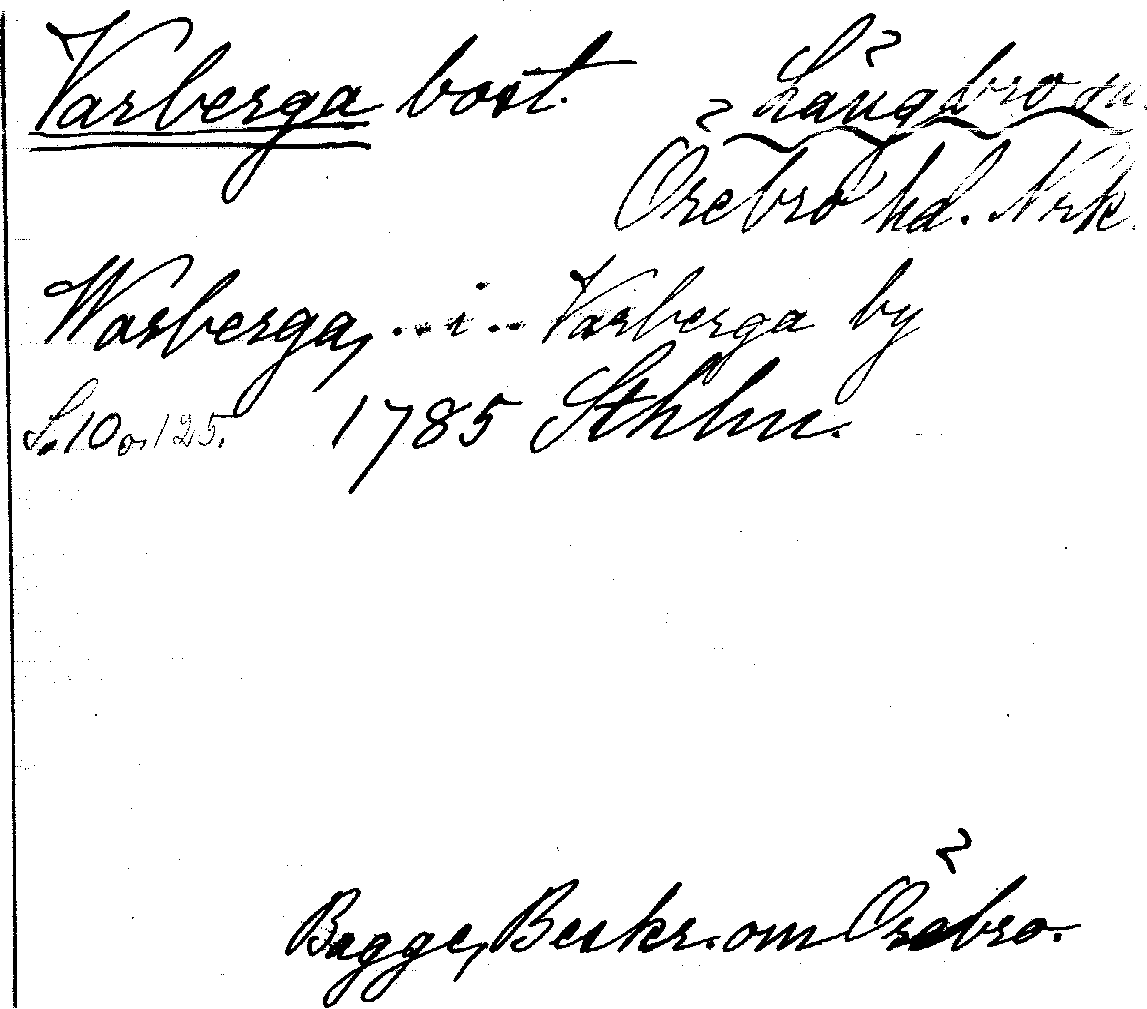 Varberga bost. Längbro sn.
Örebro hd. Nrk.
Warberga, ..i.. Varberga by
S. 10 o. 125. 1785 Sthlm.
Bagge, Beskr. om Örebro.